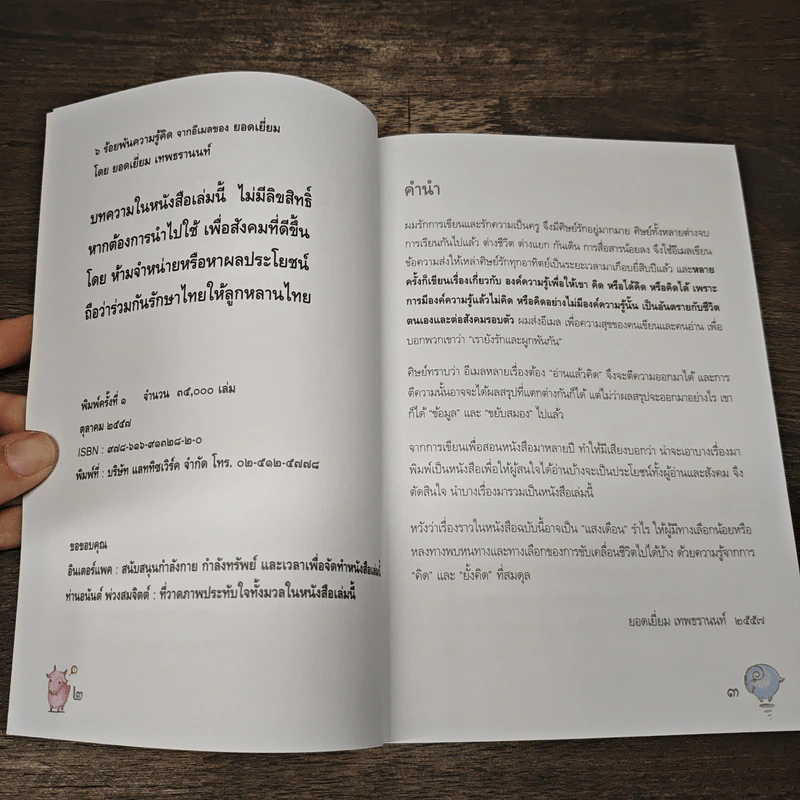 ๖ ร้อยพันความรู้คิด จากอีเมลของ ยอดเยี่ยม
โดย ยอดเยี่ยม เทพธรานนท์
บทความในหนังสือเล่มนี้ ไม่มีลิขสิทธิ์
หากต้องการนำไปใช้ เพื่อสังคมที่ดีขึ้น
โดย ห้ามจำหน่ายหรือหาผลประโยชน์
ถือว่าร่วมกันรักษาไทยให้ลูกหลานไทย
พิมพ์ครั้งที่ ๑ จำนวน ๓๔,๐๐๐ เล่ม
ตุลาคม ๒๕๕๗
ISBN : ๙๗๘-๖๑๖-๙๑๓๒๘-๒-๐
พิมพ์ที่ : บริษัท แลททิซเวิร์ค จำกัด โทร. ๐๒-๕๑๒-๕๗๗๘
ขอขอบคุณ
อินเตอร์แพค : สนับสนุนกำลังกาย กำลังทรัพย์ และเวลาเพื่อจัดทำหนังสือเล่มนี้
ท่านอนันต์ พ่วงสมจิตต์ : ที่วาดภาพประทับใจทั้งมวลในหนังสือเล่มนี้
๒
คำนำ
ผมรักการเขียนและรักความเป็นครู จึงมีศิษย์รักอยู่มากมาย ศิษย์ทั้งหลายต่างจบ
การเรียนกันไปแล้ว ต่างชีวิต ต่างแยก กันเดิน การสื่อสารน้อยลง จึงใช้อีเมลเขียน
ข้อความส่งให้เหล่าศิษย์รักทุกอาทิตย์เป็นระยะเวลามาเกือบยี่สิบปีแล้ว และหลาย
ครั้งก็เขียนเรื่องเกี่ยวกับ องค์ความรู้เพื่อให้เขา คิด หรือได้คิด หรือคิดได้ เพราะ
การมีองค์ความรู้แล้วไม่คิด หรือคิดอย่างไม่มีองค์ความรู้นั้น เป็นอันตรายกับชีวิต
ตนเองและต่อสังคมรอบตัว ผมส่งอีเมล เพื่อความสุขของคนเขียนและคนอ่าน เพื่อ
บอกพวกเขาว่า “เรายังรักและผูกพันกัน”
ศิษย์ทราบว่า อีเมลหลายเรื่องต้อง “อ่านแล้วคิด” จึงจะตีความออกมาได้ และการ
ตีความนั้นอาจจะได้ผลสรุปที่แตกต่างกันก็ได้ แต่ไม่ว่าผลสรุปจะออกมาอย่างไร เขา
ก็ได้ “ข้อมูล” และ “ขยับสมอง” ไปแล้ว
จากการเขียนเพื่อสอนหนังสือมาหลายปี ทำให้มีเสียงบอกว่า น่าจะเอาบางเรื่องมา
พิมพ์เป็นหนังสือเพื่อให้ผู้สนใจได้อ่านบ้างจะเป็นประโยชน์ทั้งผู้อ่านและสังคม จึง
ตัดสินใจ นำบางเรื่องมารวมเป็นหนังสือเล่มนี้
หวังว่าเรื่องราวในหนังสือฉบับนี้อาจเป็น “แสงเดือน” รำไร ให้ผู้มีทางเลือกน้อยหรือ
หลงทางพบหนทางและทางเลือกของการขับเคลื่อนชีวิตไปได้บ้าง ด้วยความรู้จากการ
“คิด” และ “ยั้งคิด” ที่สมดุล
ยอดเยี่ยม เทพธรานนท์ ๒๕๕๗
๓